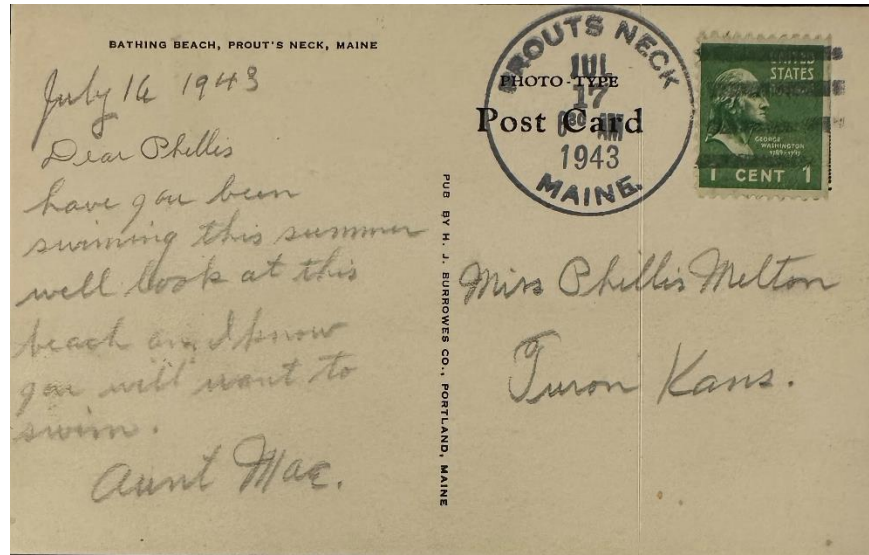 BATHING BEACH, PROUT'S NECK, MAINE
July 16 1943
Dear Phellis
have you been
swiming this summer
well look at this
beach and I know
you will want to
swim.
Aunt Mae.
PUB BY H. J. BURROWES CO., PORTLAND, MAINE
PROUTS NECK
JUL
17
AM
1943
MAINE.
PHOTO-TYPE
Post Card
UNITED
STATES
GEORGE
WASHINGTON
1789-1797
1 CENT 1
Miss Phellis Melton
Turon Kans.